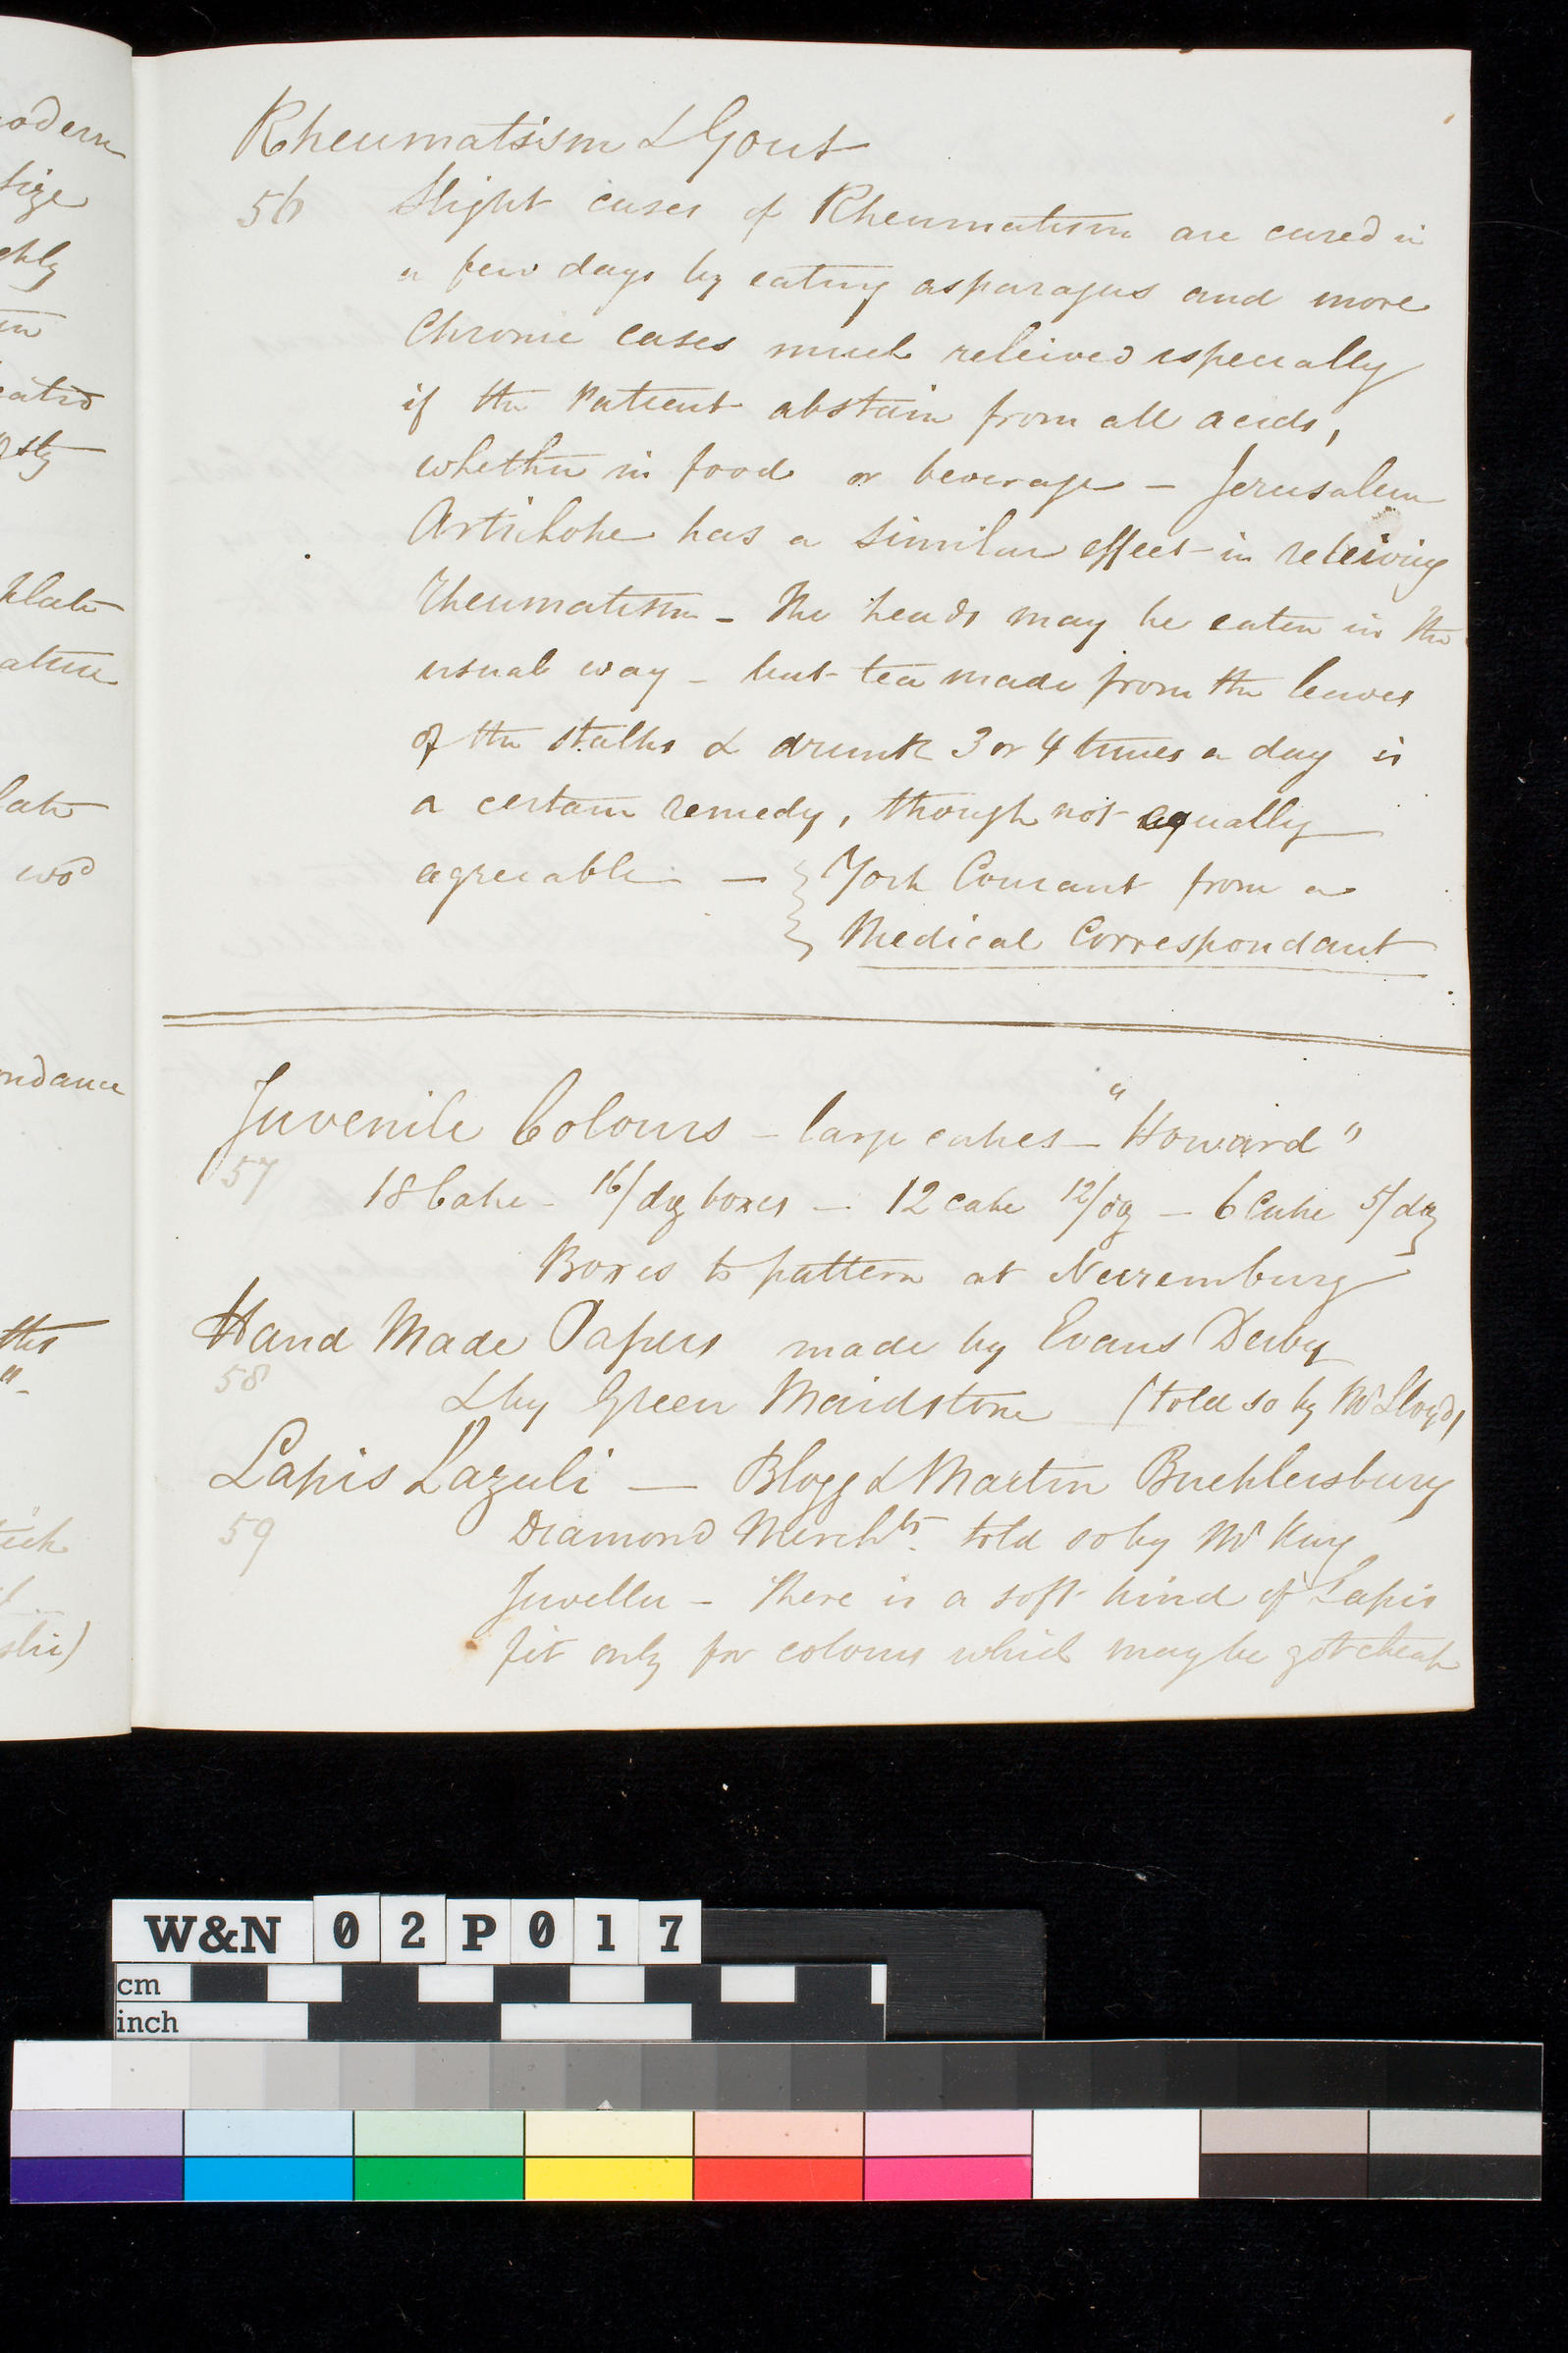 odern
size
ghly
in
eatid
sly
Plate
ature
late
wod
ndance
this
"-
stic)
Rheumatism & Gout
56 Slight cases of Rheumatism are cured in
a few days by eating asparagus and more
Chronic cases much releived especially
if the Patient abstain from all acids,
whether in food or beverage – Jerusalem
Artichoke has a similar effect in releiving
Rheumatism – The heads may be eaten in the
usual way – but tea made from the leaves
of the stalks & drunk 3 or 4 times a day is
a certain remedy, though not equally
agreeable – { York Courant from a
Medical Correspondant
Juvenile Colours – large cakes – "Howard"
57 18 Cake – 16/ doz boxes – 12 cake 12/ doz – 6 Cake 5/ doz
Boxes to pattern at Neuremburg
Hand Made Papers made by Evans Derby
58 & by Green Maidstone (told so by Mr Lloyd,
Lapis Lazuli – Blogg & Martin Bucklersbury
59 Diamond Merchts. told so by Mr King
Juveller – There is a soft kind of Lapis
fit only for colours which may be got cheap
W&N 0 2 P 0 1 7
cm
inch